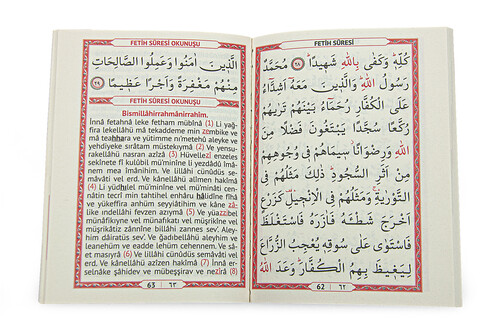 FETİH SÛRESİ
كُلِّهٖ وَكَفٰى بِاللّٰهِ شَهٖيدًا ﴿٢٨﴾ مُحَمَّدٌ
رَسُولُ اللّٰهِ وَالَّذٖينَ مَعَهُٓ اَشِدَّٓاءُ
عَلَى الْكُفَّارِ رُحَمَٓاءُ بَيْنَهُمْ تَرٰيهُمْ
رُكَّعًا سُجَّدًا يَبْتَغُونَ فَضْلًا مِنَ
اللّٰهِ وَرِضْوَانًا سٖيمَاهُمْ فٖى وُجُوهِهِمْ
مِنْ اَثَرِ السُّجُودِ ذٰلِكَ مَثَلُهُمْ فِى
التَّوْرٰيةِ وَمَثَلُهُمْ فِى الْاِنْجٖيلِ كَزَرْعٍ
اَخْرَجَ شَطْـَٔهُ فَاٰزَرَهُ فَاسْتَغْلَظَ
فَاسْتَوٰى عَلٰى سُوقِهٖ يُعْجِبُ الزُّرَّاعَ
لِيَغٖيظَ بِهِمُ الْكُفَّارَ وَعَدَ اللّٰهُ
62 ٦٢
FETİH SÛRESİ OKUNUŞU
الَّذٖينَ اٰمَنُوا وَعَمِلُوا الصَّالِحَاتِ
مِنْهُمْ مَغْفِرَةً وَاَجْرًا عَظٖيمًا ﴿٢٩﴾
FETİH SÛRESİ OKUNUŞU
Bismillâhirrahmânirrahîm.
İnnâ fetahnâ leke fetham mübînâ (1) Li yağ-
fira lekellâhü mâ tekaddeme min zembike ve
mâ teahhara ve yütimme ni'metehû aleyke ve
yehdiyeke sırâtam müstekymâ (2) Ve yensu-
rakellâhü nasran azîzâ (3) Hüvellezî enzeles
sekînete fî kulûbil mü'minîne li yezdâdû îmâ-
nem mea îmânihim. Ve lillâhi cünûdüs semâ-
vâti vel erd. Ve kânellâhü alîmen hakîmâ
(4) Li yüdhılel mü'minîne vel mü'minâti cen-
nâtin tecrî min tahtihel enhâru hâlidîne fîhâ
ve yükeffira anhüm seyyiâtihim ve kâne zâ-
like indellâhi fevzen azîymâ (5) Ve yüazzibel
münâfikıyne vel münâfikâti vel müşrikîne vel
müşrikâtiz zânnîne billâhi zannes sev'. Aley-
him dâiratüs sev'. Ve ğadıbellâhü aleyhim ve
leanehüm ve eadde lehüm cehennem. Ve sâ-
et masıyrâ (6) Ve lillâhi cünûdüs semâvâti vel
erd. Ve kânellâhü azîzen hakîmâ (7) İnnâ er-
selnâke şâhidev ve mübeşşirav ve nezîrâ (8)
63 ٦٣